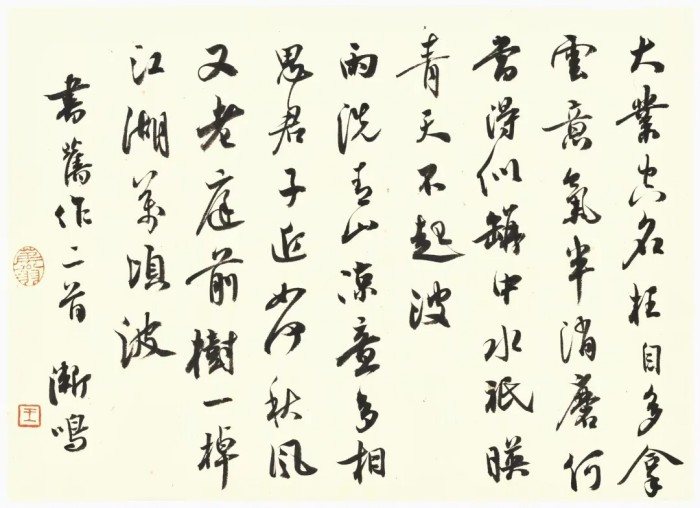 大業空名枉自多拿
雲意氣半消磨何
當得似罇中水祇暎
青天不起波
雨洗青山凉意多相
思君子近如何秋風
又老庭前樹一棹
江湖萬頃波
書舊作二首 漸鳴
王